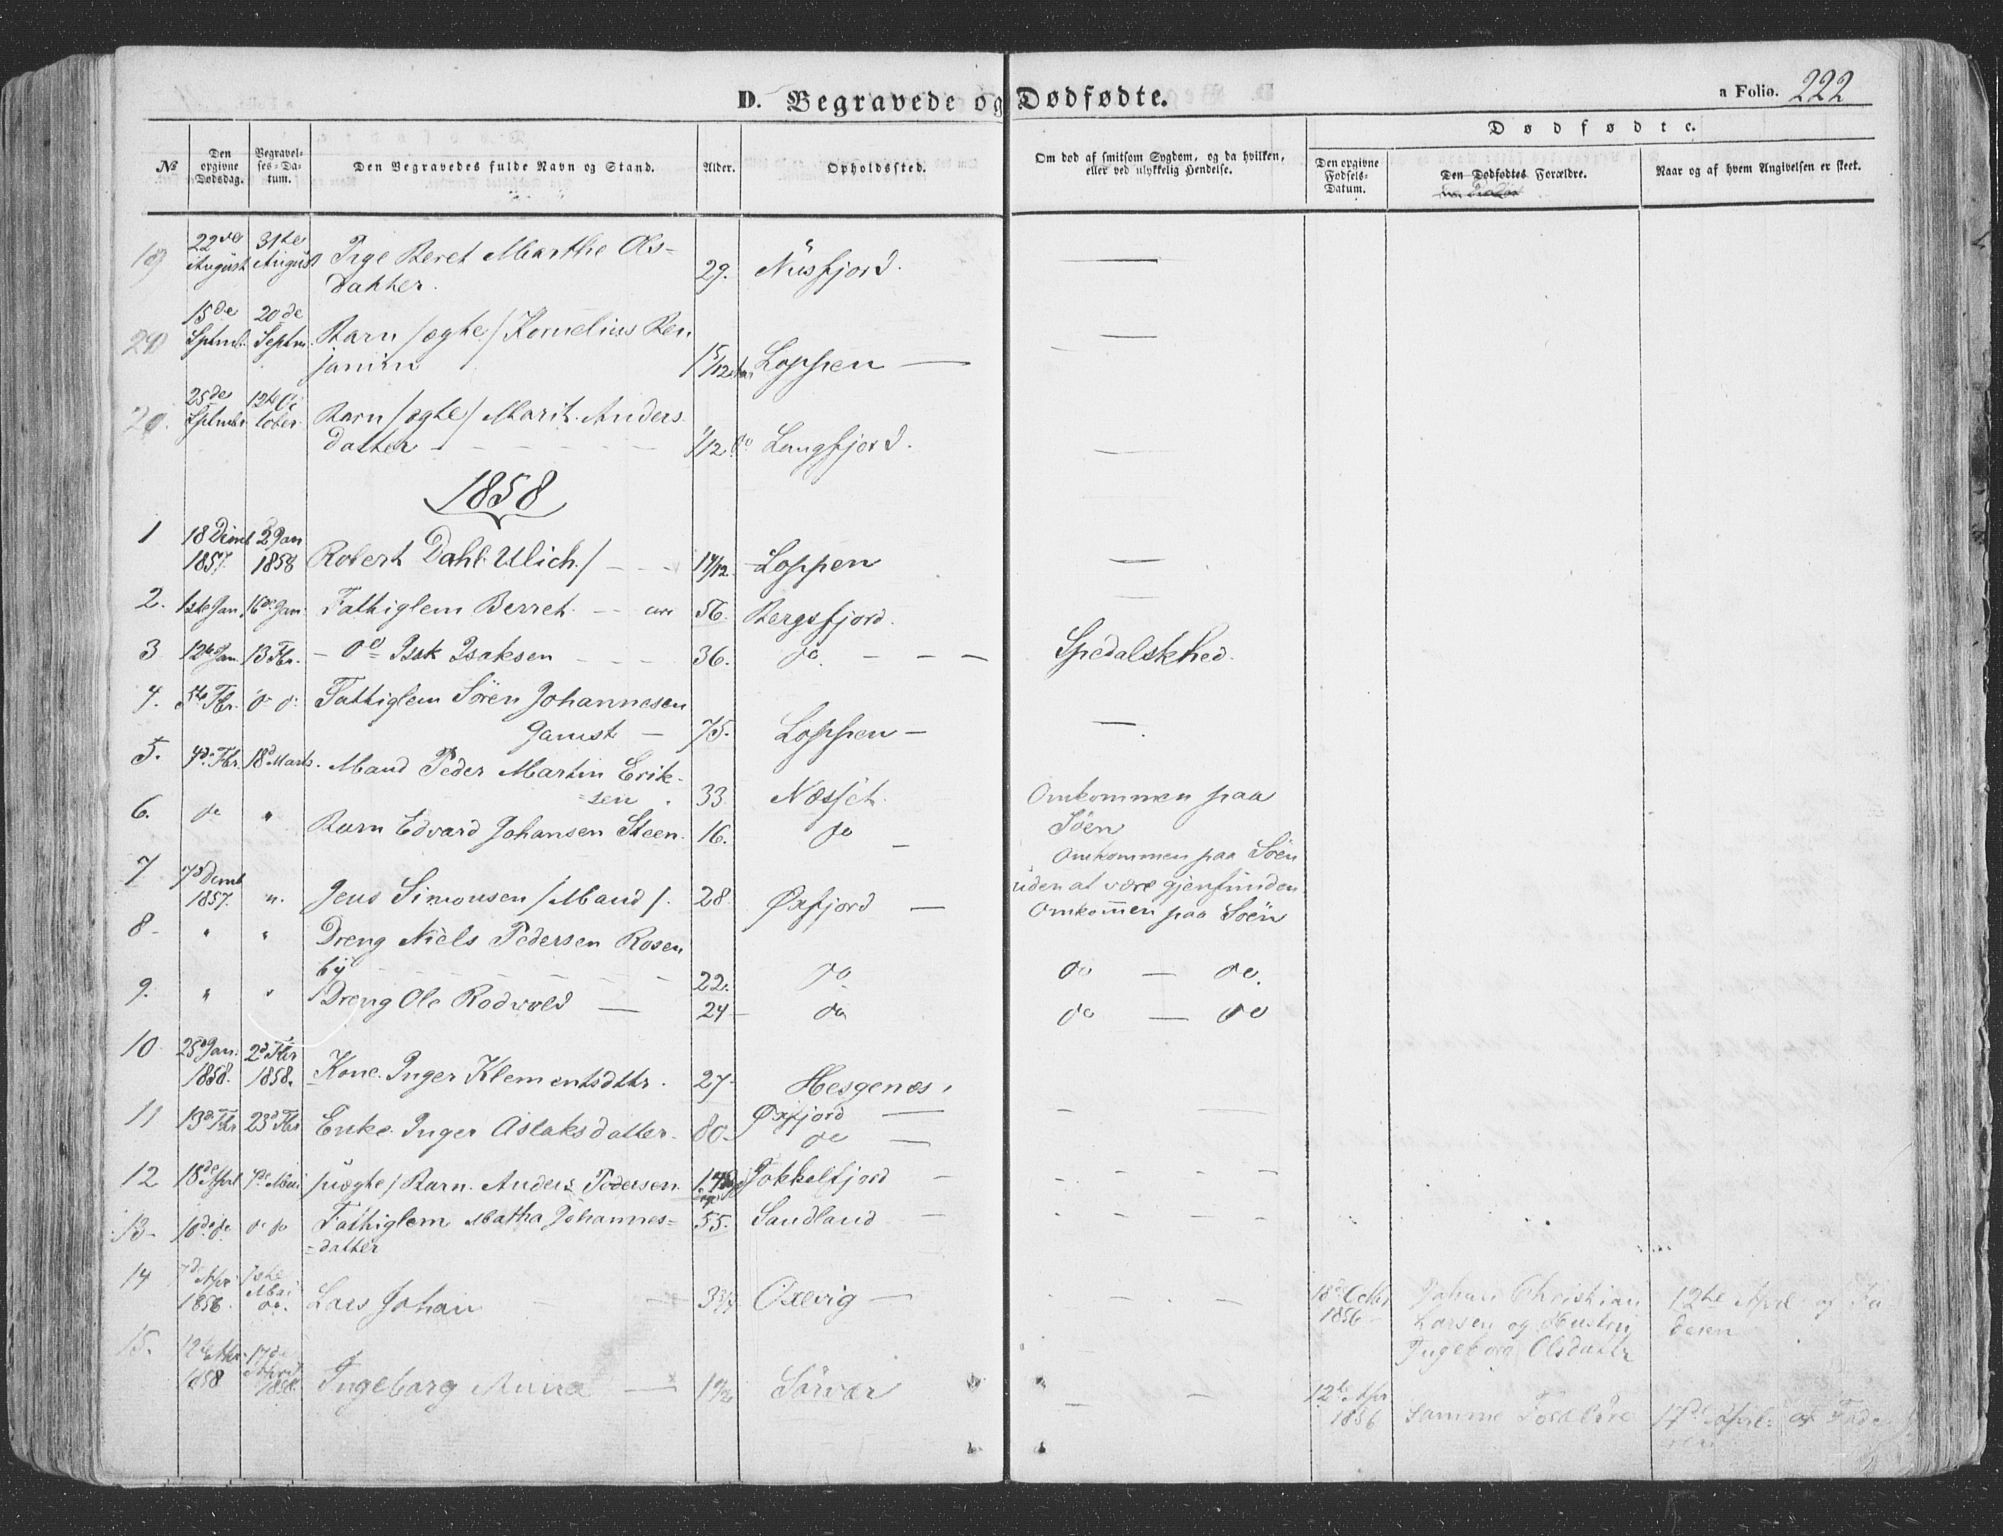 D. Begravede og Dødfødte.
a Folio. 222
Dødfødte.
No
Den opgivne Dødsdag.
Begravelses-Datum.
Den Begravedes fulde Navn og Stand.
Alder.
Opholdssted.
Om død af smitsom Sygdom, og da hvilken, eller ved ulykkelig Hendelse.
Den opgivne Fødsels-Datum.
Den Dødfødtes Forældre.
Naar og af hvem Angivelsen er skeet.
19 22de August 31te August Pige Beret Marthe Ols-
datter. 29. Nusfjord. —
20 15de Septmbr 20de Septm. Barn /ægte/ Kornelius Ben
jamin Loppen — —
25de Septmbr 12te October Barn /ægte/ Marit Anders
datter 1/12 do Langfjord. —
1858
1 18 Decmb 1857. 2 Jan 1858 Robert Dahl Ulich / Loppen —
2. 1ste Jan. 16de Jan. Fattiglem Berret 56. Bergsfjord. —
3 12te Jan. 13 Fbr. — do Isak Isaksen 36. do. — — — Spedalskhed.
4. 5te Fbr. do do Fattiglem Sören Johannesen
Gamst — 75. Loppen — —
5. 4de Fbr. 18d Marts. Mand Peder Martin Erik-
sen 33. Næsset. Omkommen paa
Søen
6. do " Barn Edvard Johansen Steen. 16. do — Omkommen paa Søen
uden at være gjenfunden.
7 7d Decmb 1857. " Jens Simonsen /Mand/. 28. Øxfjord — Omkommen paa Søen
8 " " Dreng Niels Pedersen Rosen
by 22. do do — do.
9. " " Dreng Ole Rodvold — 24 — do do — do
10 25d Jan. 1858. 2d Fbr 1858. Kone Inger Klementsdttr. 27 Hesgenæs,
Øxfjord —
11 13d Fbr 23d Fbr Enke Inger Aslaksdatter. 80 do — —
12 18de April 1d Mai /uægte/ Barn Anders Pedersen Jokkelfjord —
13 10de do do do Fattiglem Matha Johannes=
=datter 55. Sandland —
14 7d Apr 1858. 1ste Mai do. Lars Johan — Oxevig — 18d Octbr 1856 Johan Christian
Larsen og Hustru
Ingeborg Olsdattr 12te April af Fa
deren
15. 12te Apr 1858 17de April 1858. Ingeborg Anna — Sörvær 12te Apr 1856 Samme Forældre 17de April af Fade
ren